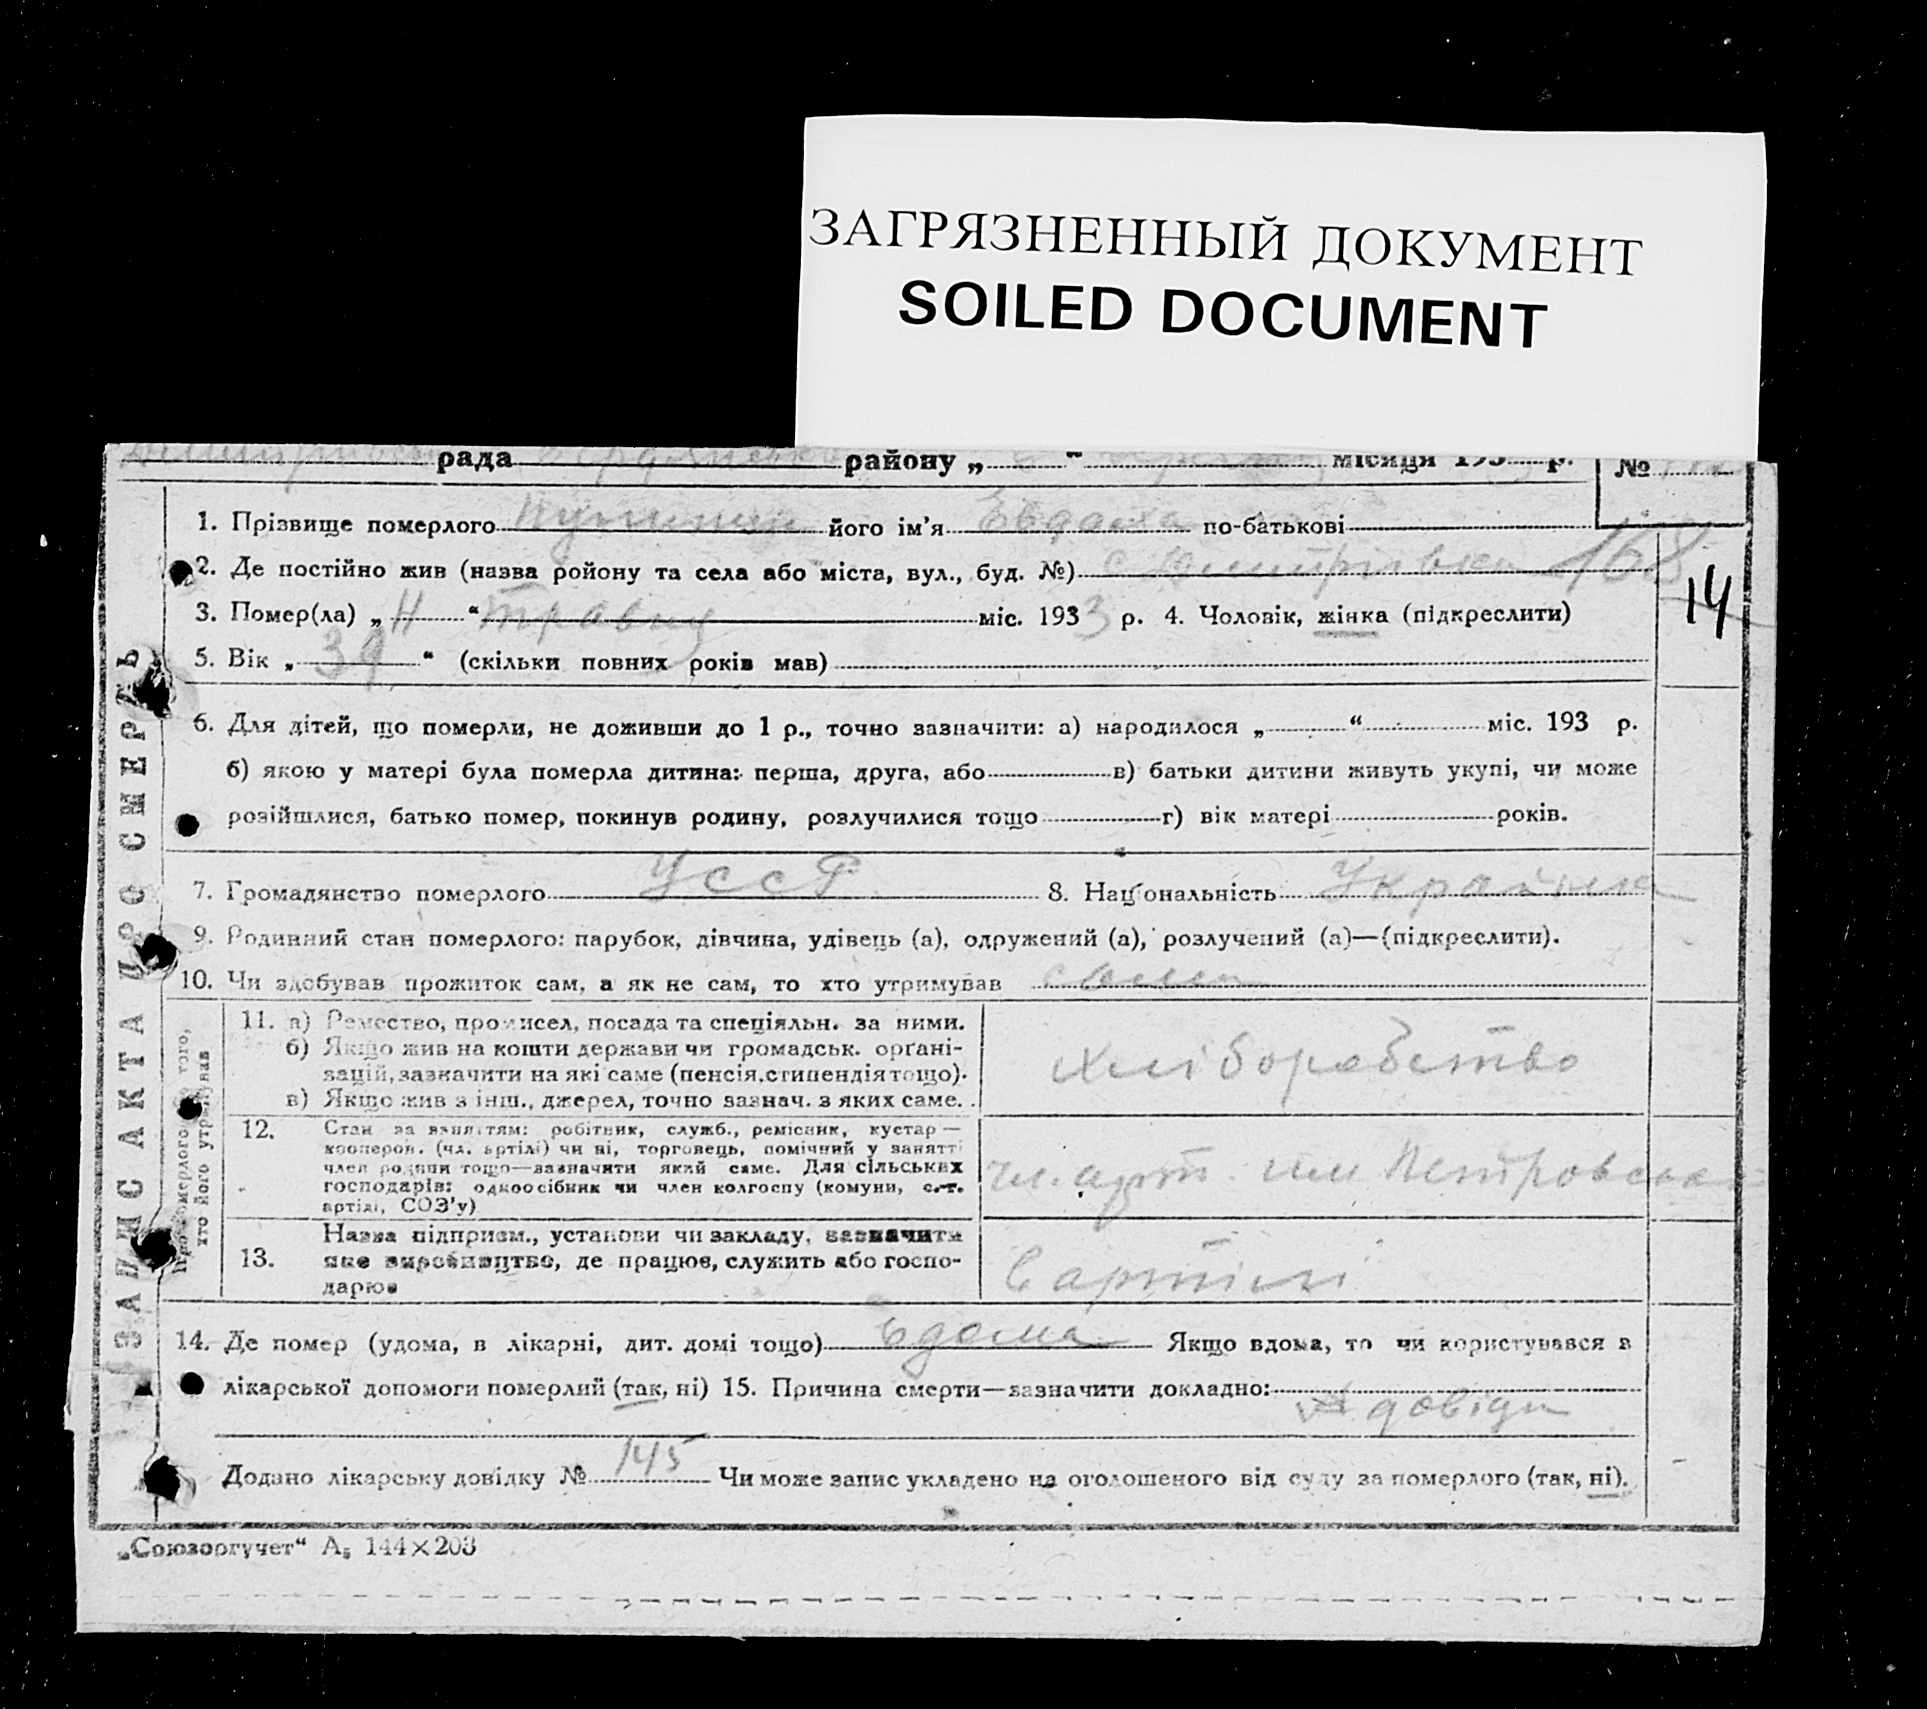 ЗАГРЯЗНЕННЫЙ ДОКУМЕНТ
SOILED DOCUMENT
рада району „ “ місяця 193 р. №
1. Прізвище померлого його ім’я Евдоха по-батькові
2. Де постійно жив (назва ройону та села або міста, вул., буд. №) с Дмитрівка 168
14
3. Помер(ла) „ “ травня міс. 1933 р. 4. Чоловік, жінка (підкреслити)
5. Вік „ 39 “ (скільки повних років мав)
6. Для дітей, що померли, не доживши до 1 р., точно зазначити: а) народилося „ “ міс. 193 р.
б) якою у матері була померла дитина: перша, друга, або в) батьки дитини живуть укупі, чи може
розійшлися, батько помер, покинув родину, розлучилися тощо г) вік матері років.
7. Громадянство померлого УССР 8. Національність Українка
9. Родинний стан померлого: парубок, дівчина, удівець (а), одружений (а), розлучений (а)—(підкреслити).
10. Чи здобував прожиток сам, а як не сам, то хто утримував сама
11. а) Ремество, промисел, посада та спеціяльн. за ними.
б) Якщо жив на кошти держави чи громадськ. орґані-
зацій, зазначити на які саме (пенсія, стипендія тощо).
в) Якщо жив з інш., джерел, точно зазнач. з яких саме.
хліборобство
12. Стан за заняттям: робітник, служб., ремісник, кустар—
кооперов. (чл. артілі) чи ні, торговець, помічний у занятті
член родини тощо—зазначити який саме. Для сільських
господарів: одноосібник чи член колгоспу (комуни, с.-г.
артілі, СОЗ'у)
чл. арт. им Петровська
13. Назва підприєм., установи чи закладу, зазначити
яке виробництво, де працює, служить або госпо-
дарює
в артілі
14. Де помер (удома, в лікарні, дит. домі тощо) вдома Якщо вдома, то чи користувався в
лікарської допомоги померлий (так, ні) 15. Причина смерти—зазначити докладно:
довідц
Додано лікарську довідку № 145 Чи може запис укладено на оголошеного від суду за померлого (так, ні).
ЗАПИС АКТА ПРО СМЕРТЬ
Про померлого того,
хто його утримував
„Союзоргучет“ А₅ 144×203